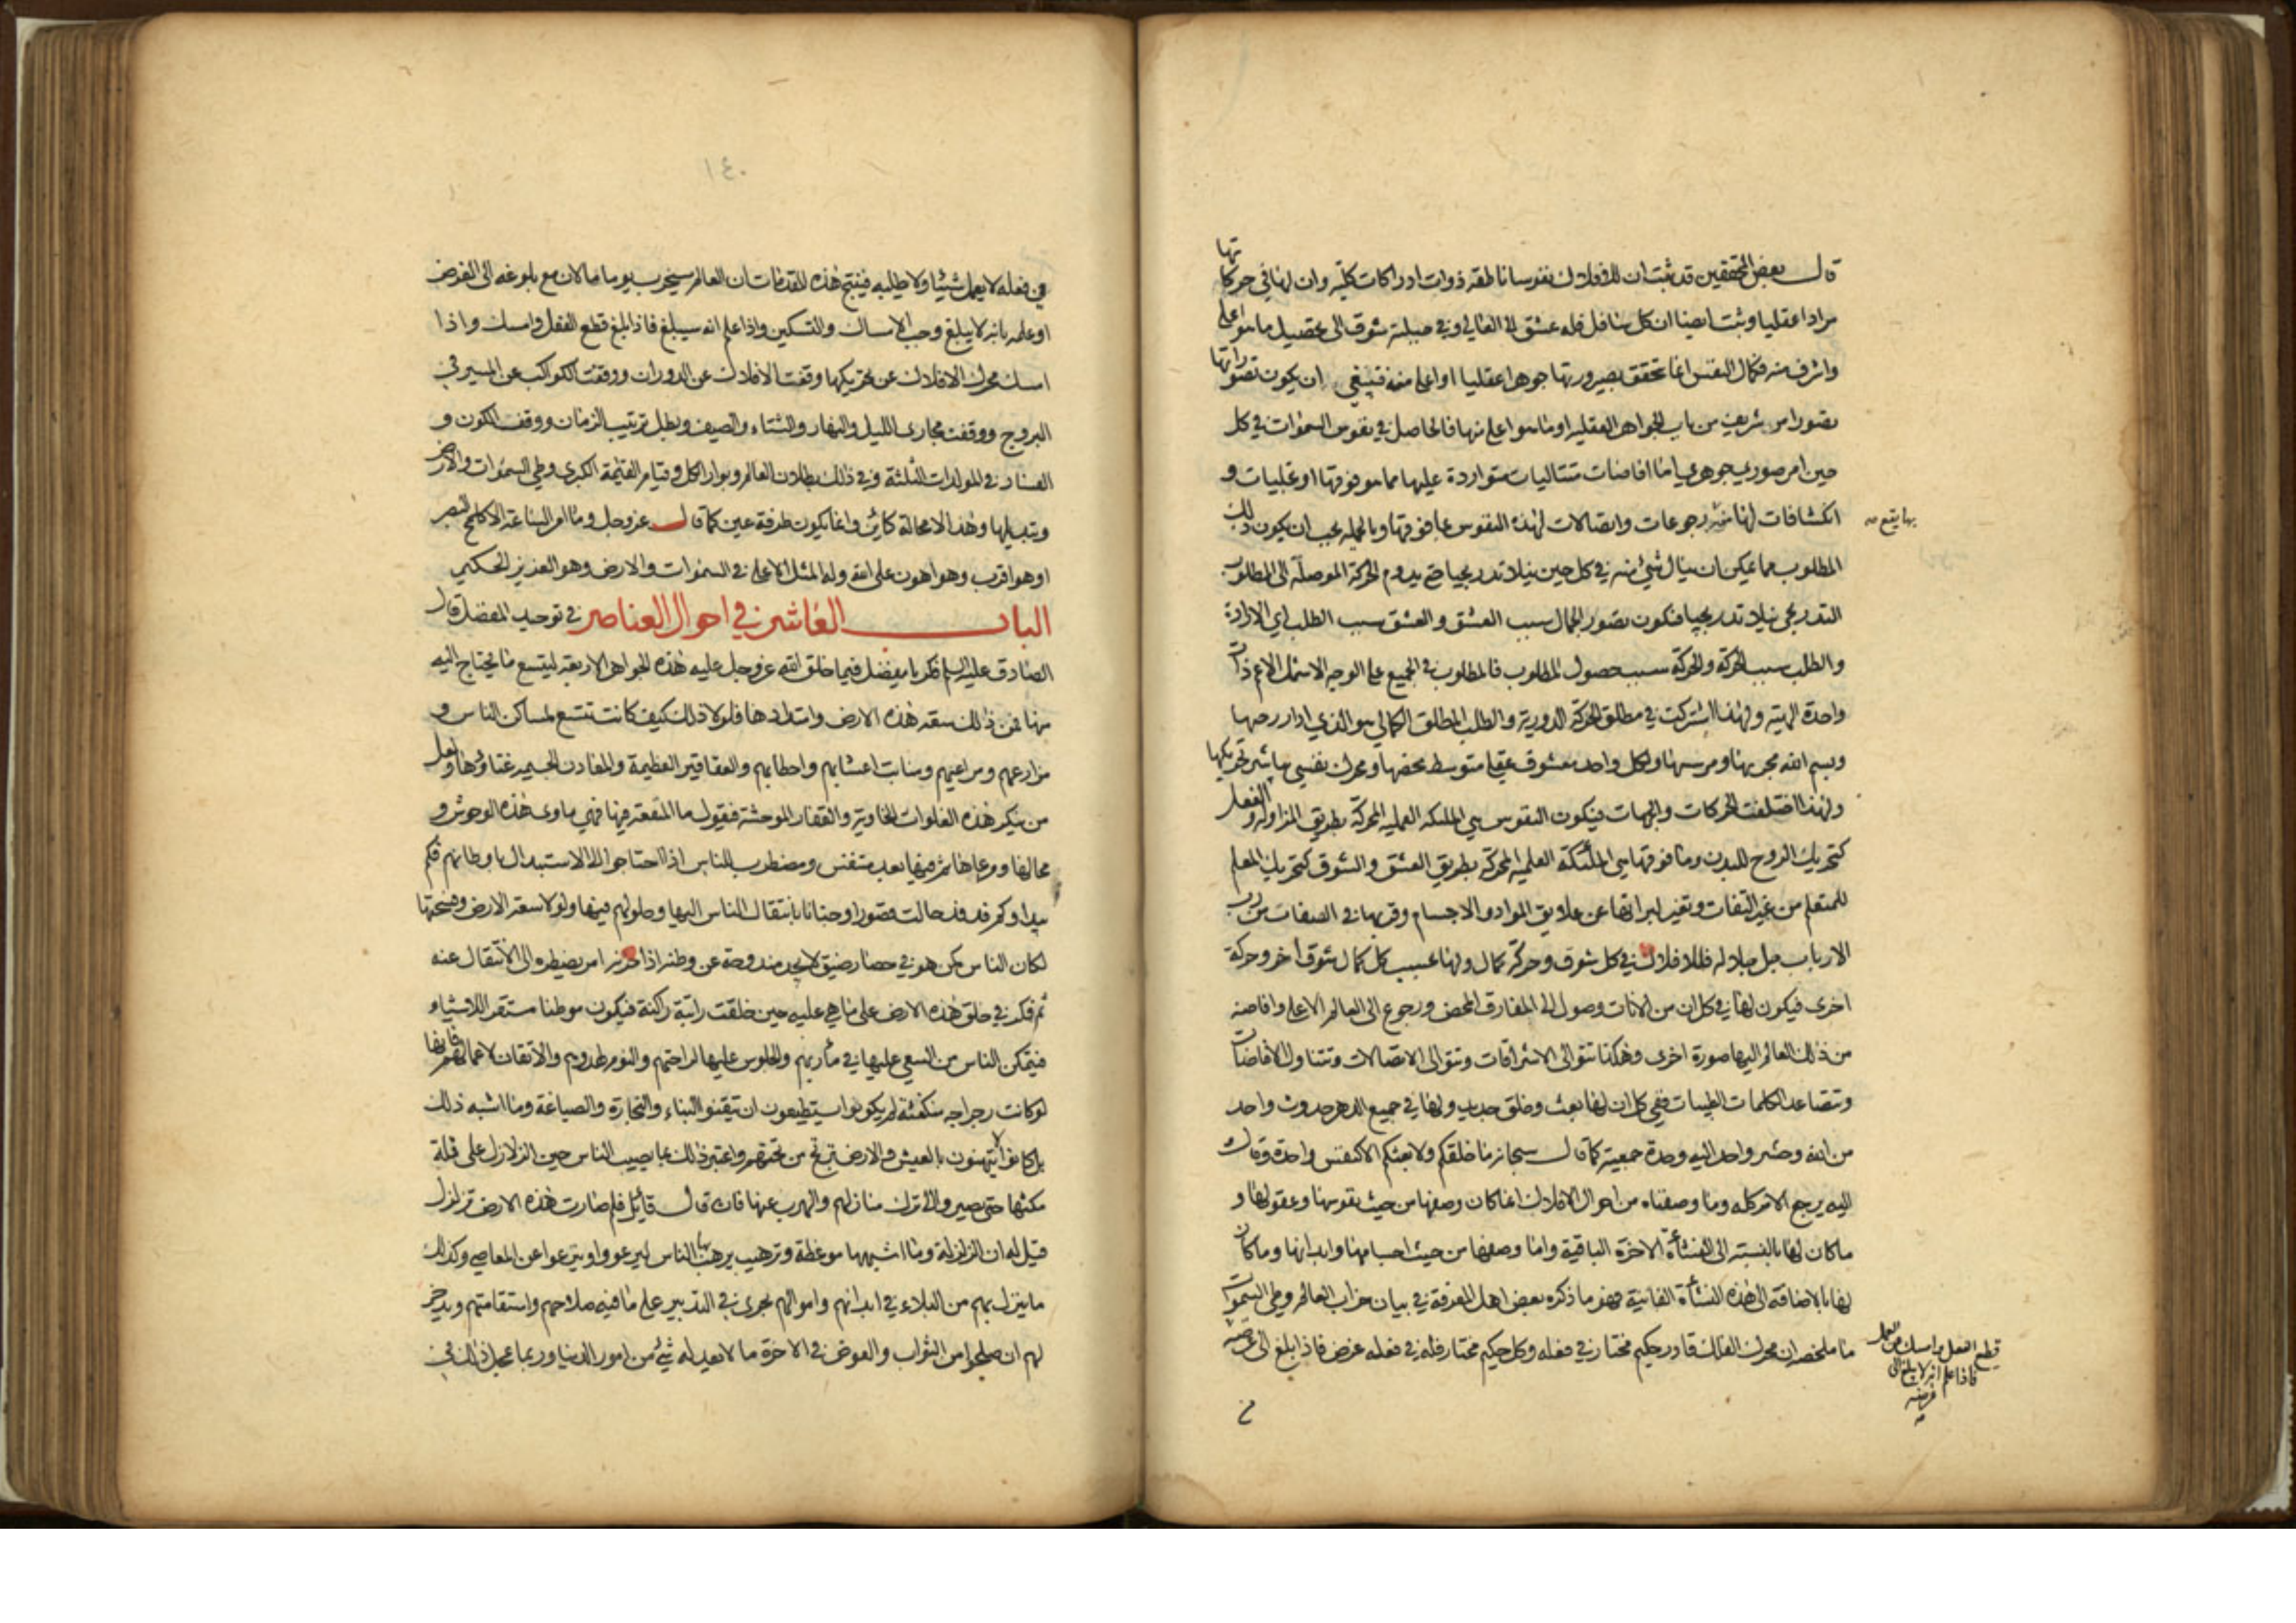 قال بعض المحققين قد ثبت ان للافلاك نفوسا ناطقة ذوات ادراكات كلية وان لها في حركاتها
مرادا عقليا وثبت ايضا ان كل سافل فله عشق الى العالي وفي جبلته شوق الى تحصيل ما هو اعلى
واشرف منه فكمال النفس انما تحقق بصيرورتها جوهرا عقليا او اعلى منه فينبغي ان يكون تصوراتها
تصور امر شريف من باب الجواهر العقلية او ما هو اعلى منها فالحاصل في نفوس السموات في كل
حين امر صوري جوهري اما افاضات متتاليات متواردة عليها مما هو فوقها او تجليات و
انكشافات لها رجوعات واتصالات لهذه النفوس بما فوقها وبالجملة يجب ان يكون ذلك
بها يتبع
المطلوب مما يمكن ان ينال شيء منه في كل حين نيلا تدريجيا حتى يدوم الحركة الموصلة الى المطلوب
التدريجي نيلا تدريجيا فيكون تصور الجمال سبب العشق والعشق سبب الطلب اي الارادة
والطلب سبب الحركة والحركة سبب حصول المطلوب فالمطلوب في الجميع على الوجه الاشمل الاعم ذات
واحدة الهية ولهذا اشتركت في مطلق الحركة الدورية والطلب المطلق الكمالي هو الذي ادار رحيها
وبسم الله مجريها ومرسيها ولكل واحد معشوق عقلي متوسط يخصها ومحرك نفسي يباشر تحريكها
ولهذا اختلفت الحركات والجهات فيكون النفوس هي الملئكة العملية المحركة بطريق المزاولة والفعل
كتحريك الروح للبدن وما فوقها هي الملئكة العلمية المحركة بطريق العشق والشوق كتحريك المعلم
للمتعلم من غير التفات وتغير لبرائتها عن علايق المواد والاجسام وقربها في الصفات من رب
الارباب جل جلاله فللافلاك في كل شوق وحركة كمال ولها بحسب كل كمال شوق اخر وحركة
اخرى فيكون لها في كل ان من الانات وصول الى المفارق المحض ورجوع الى العالم الاعلى وافاضة
من ذلك العالم اليها صورة اخرى وهكذا تتوالى الاشراقات وتتوالى الاتصالات وتتناول الافاضات
وتتصاعد الكلمات الطيبات ففي كل ان لها بعث وخلق جديد ولها في جميع الدهر حدوث واحد
من الله وحشر واحد اليه وحدة جمعية كما قال سبحانه ما خلقكم ولا بعثكم الا كنفس واحدة وقال
اليه يرجع الامر كله وما وصفناه من احوال الافلاك انما كان وصفها من حيث نفوسها وعقولها و
ما كان لها بالنسبة الى النشأة الاخرة الباقية واما وصفها من حيث اجسامها وابدانها وما كان
لها بالاضافة الى هذه النشأة الفانية فهو ما ذكره بعض اهل المعرفة في بيان خراب العالم وطي السموات
ما ملخصه ان محرك الفلك قادر حكيم مختار في فعله وكل حكيم مختار فله في فعله غرض فاذا بلغ الى غرضه
قطع الفعل وامسك عن العمل
فاذا علم انه لا يبلغ الى
غرضه
في فعله لا يعمل شيئا ولا يطلبه فينتج هذه المقدمات ان العالم سيخرب يوما ما لان مع بلوغه الى الغرض
او علمه بانه لا يبلغ وجب الامساك والتسكين واذا علم انه سيبلغ فاذا بلغ قطع الفعل وامسك واذا
امسك محرك الافلاك عن تحريكها وقفت الافلاك عن الدوران ووقفت الكواكب عن المسير في
البروج ووقفت مجاري الليل والنهار والشتاء والصيف وبطل ترتيب الزمان ووقف الكون و
الفساد في المولدات الثلثة وفي ذلك بطلان العالم وبوار الكل وقيام القيمة الكبرى وطي السموات والارض
وتبديلها وهذا لا محالة كائن وانما يكون طرفة عين كما قال عز وجل وما امر الساعة الا كلمح البصر
او هو اقرب وهو اهون على الله وله المثل الاعلى في السموات والارض وهو العزيز الحكيم
الباب العاشر في احوال العناصر في توحيد المفضل قال
الصادق عليه السلم فكر يا مفضل فيما خلق الله عز وجل عليه هذه الجواهر الاربعة ليتسع ما يحتاج اليه
منها فمن ذلك سعة هذه الارض وامتدادها فلولا ذلك كيف كانت تتسع لمساكن الناس و
مزارعهم ومراعيهم ومنابت اخشابهم واحطابهم والعقاقير العظيمة والمعادن الجسيمة غناؤها ولعل
من ينكر هذه الفلوات الخاوية والقفار الموحشة فيقول ما المنفعة فيها فهي ماوى هذه الوحوش و
محالها ومرعاها ثم فيها بعد متنفس ومضطرب للناس اذا احتاجوا الى الاستبدال باوطانهم فكم
بيداء وكم فدفد حالت قصورا وجنانا بانتقال الناس اليها وحلولهم فيها ولولا سعة الارض وفسحتها
لكان الناس كمن هو في حصار ضيق لا يجد مندوحة عن وطنه اذا حزنه امر يضطره الى الانتقال عنه
ثم فكر في خلق هذه الارض على ما هي عليه حين خلقت راتبة راكنة فيكون موطنا مستقرا للاشياء و
فيتمكن الناس من السعي عليها في مآربهم والجلوس عليها لراحتهم والنوم لهدوهم والاتقان لاعمالهم فانها
لو كانت رجراجة متكفئة لم يكونوا يستطيعون ان يتقنوا البناء والنجارة والصياغة وما اشبه ذلك
بل كانوا لا يتهنون بالعيش والارض ترتج من تحتهم واعتبر ذلك بما يصيب الناس حين الزلازل على قلة
مكثها حتى يصيروا الى ترك منازلهم والهرب عنها فان قال قائل فلم صارت هذه الارض تزلزل
قيل له ان الزلزلة وما اشبهها موعظة وترهيب يرهب بها الناس ليرعووا وينزعوا عن المعاصي وكذلك
ما ينزل بهم من البلاء في ابدانهم واموالهم يجري في التدبير على ما فيه صلاحهم واستقامتهم ويدخر
لهم ان صلحوا من الثواب والعوض في الاخرة ما لا يعدله شيء من امور الدنيا وربما عجل ذلك في